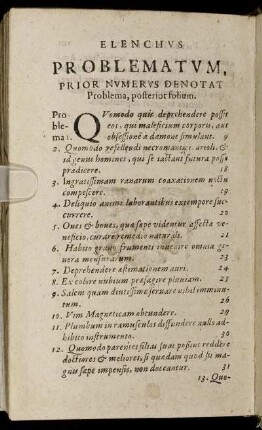 ELENCHVS
PROBLEMATVM,
PRIOR NVMERVS DENOTAT
Problema, posterior folium.
Pro-
ble-
ma 1.
QVomodo quis deprehendere possit
eos, qui maleficium corporis, aut
obsessionē a dæmone simulant. 9
2. Quomodo refellendi necromantici, arioli, &
id genus homines, qui se iactant futura posse
prædicere. 18
3. Ingratissimam ranarum coaxationem nictu
compescere. 19
4. Deliquio animi laborantibus extempore suc-
currere. 20
5. Oues & boues, quæ sæpe videntur affecta ve-
neficio, curare remedio naturali. 21
6. Habito grano frumenti inuenire omnia ge-
nera mensurarum. 23
7. Deprehendere æstimationem auri. 24
8. Ex colore nubium præsagire pluuiam. 23
9. Salem quam diutissime seruare nihil imminu-
tum. 26
10. Vim Magneticam obtundere. 29
11. Plumbum in ramusculos diffundere nullo ad-
hibito instrumento. 30
12. Quomodo parentes filios suos possint reddere
doctiores & meliores, si quadam quod sit ma-
gnis sæpe impensis, non doceantur. 31
13. Quo-